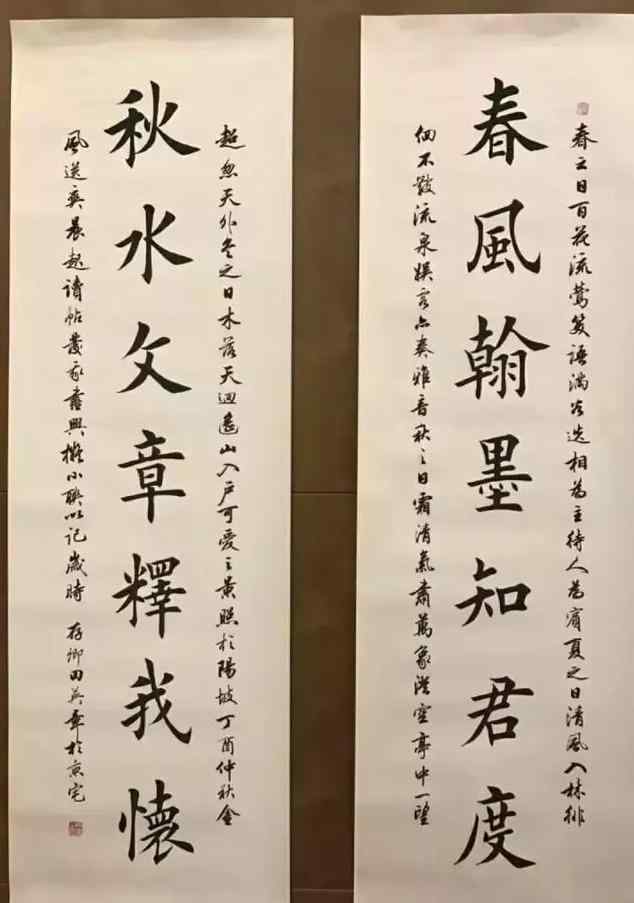 春之日百花流鶯笑語滿谷迭相為主待人為賓夏之日清風入林徘
春風翰墨知君度
佪不散流泉娛客亦奏雅音秋之日霜清氣肅萬象澄空亭中一望
超忽天外冬之日木落天迴遙山入戶可愛之景照於陽坡丁酉仲秋金
秋水文章釋我懷
風送爽晨起讀帖發我書興擬小聯以記歲時 存卿田英章於京宅